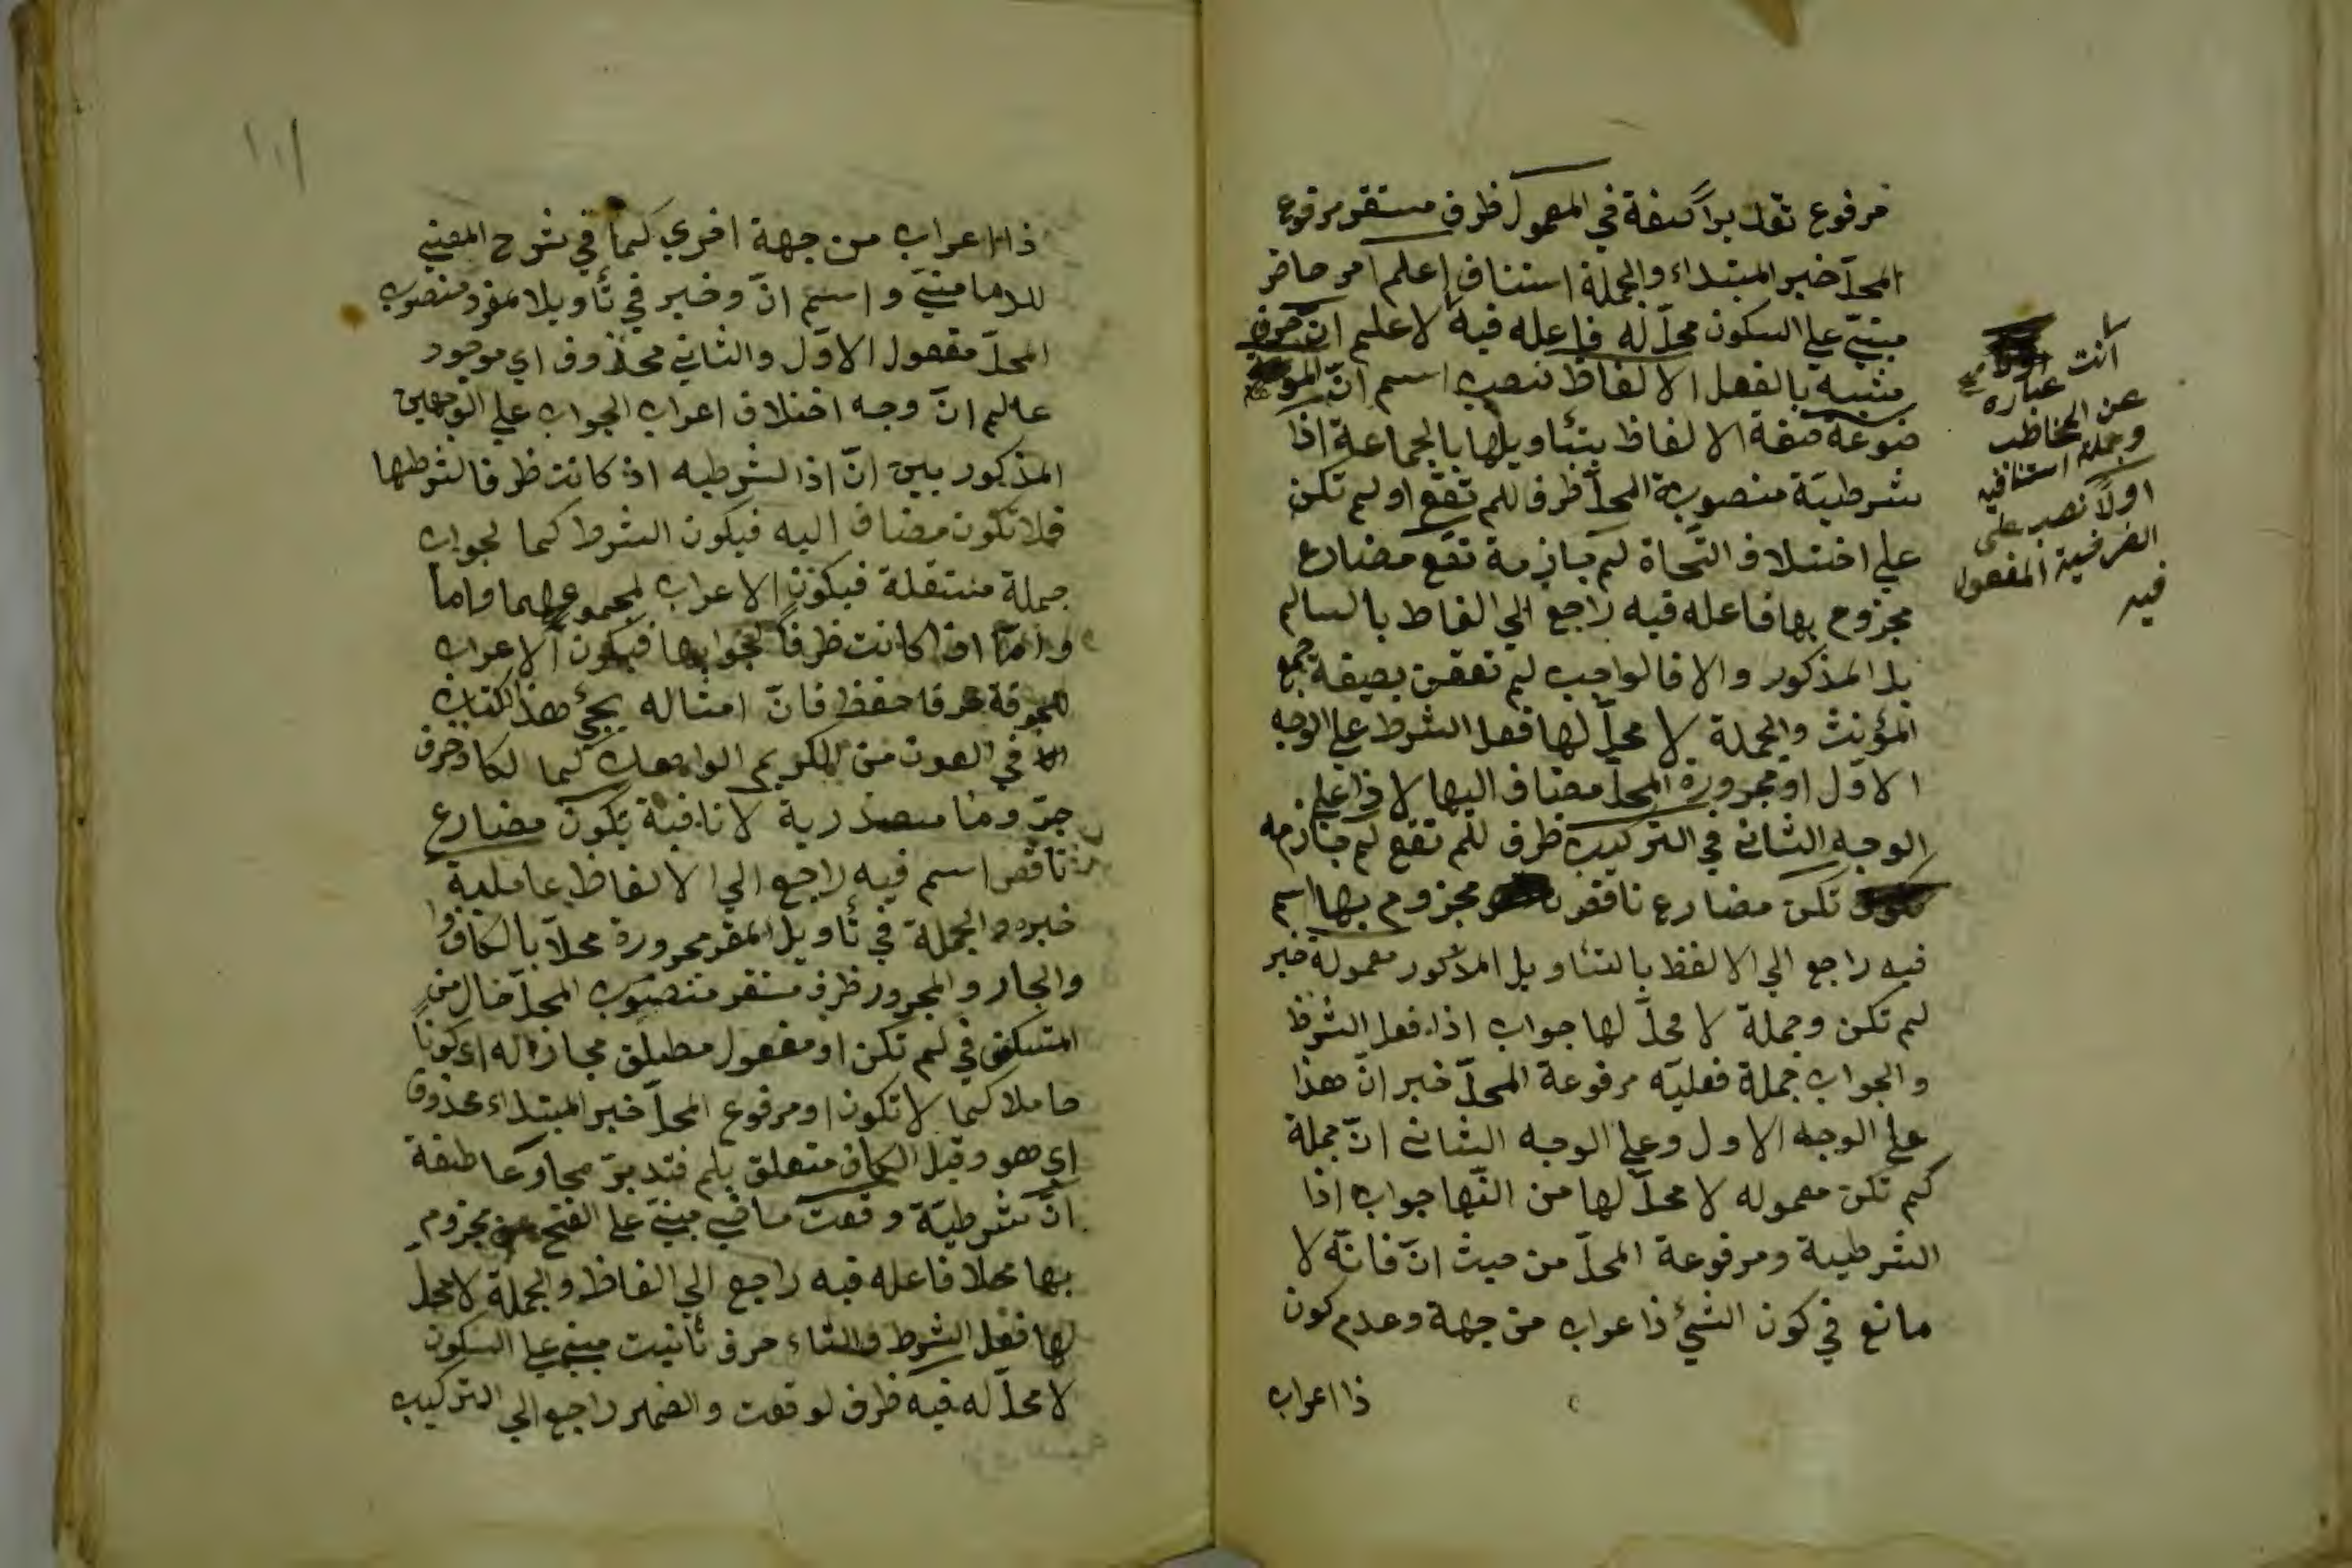 مرفوع تقديراً صفة في المعمول ظرف مستقر مرفوع
المحلّ خبر المبتداء والجملة استئناف إعلم امر حاضر
مبنيّ علي السكون محلّ له فاعله فيه لاعلم انّ حرف
مشبه بالفعل الالفاظ نصب اسم انّ المو
ضوعة صفة الالفاظ بتئاويلها بالجماعة اذا
شرطيّة منصوبة المحلّ ظرف للم تقع او لم تكن
علي اختلاف النّحاة لم جازمة تقع مضارع
مجزوم بها فاعله فيه راجع الي الفاظ بالسالم
بل المذكور والا فالواجب لم تقعن بصيغة جمع
المؤنث والجملة لا محلّ لها فعل الشرط علي الوجه
الاول او مجرورة المحلّ مضاف اليها لاذا علي
الوجه الثاني في التركيب ظرف للم تقع لم جازمه
تكن مضارع ناقص مجزوم بها اسم
فيه راجع الي الالفظ بالتئاويل المذكور معمولة خبر
لم تكن وجملة لا محلّ لها جواب اذا فعل الشرط
والجواب جملة فعليّه مرفوعة المحلّ خبر انّ هذا
علي الوجه الاول وعلي الوجه الثاني انّ جملة
لم تكن معموله لا محلّ لها من انّها جواب اذا
الشرطية ومرفوعة المحلّ من حيث انّ فانّه لا
مانع في كون الشيئ ذا عراب من جهة وعدم كون
ذا اعراب
انت عباره
عن المخاطب
وجملة استنافيه
اولاً نصب على
الفرضية المفعول
فيه
١١١
ذا اعراب من جهة اخري كما في شرح المغني
للدمامنيّ واسم انّ وخبر في تأويلا لمفرد منصوب
المحلّ مفعول الاوّل والثاني محذوف اي موجود
عالم انّ وجه اختلاف اعراب الجواب علي الوجهين
المذكور بين انّ اذا الشرطيه اذ كانت ظرفا لشرطها
فلا تكون مضاف اليه فيكون الشرط كما لجواب
جملة مستقلة فيكون الاعراب لمجموعهما واما
وامّا اذا كانت ظرفاً لجوابها فيكون الاعراب
فاحفظ فانّ امثاله يجيئ هذا الكتاب
في العون من الكريم الوا كما لكاف حرف
جرّ وما مصدرية لا نافية تكون مضارع
ناقص اسم فيه راجع الي الالفاظ عاملية
خبره والجملة في تأويل المفر مجرورة محلاّ بالكاف وا
والجار والمجرور ظرف مستقر منصوب المحلّ حال من
المستكن في لم تكن او مفعول مطلق مجازا له اى كوناً
حاملا كما لا تكون او مرفوع المحلّ خبر المبتداء محذوف
اي هو وقيل الكاف متعلق بلم فتدبرّ عاطفة
انّ شرطيّة وقعت ماضي مبنيّ علي الفتح مجزوم
بها محلا فاعله فيه راجع الي الفاظ والجملة لا محلّ
لها فعل الشرط والتاء حرف تأنيث مبني علي السكون
لا محلّ له فيه ظرف لوقعت والضمير راجع الي التركيب